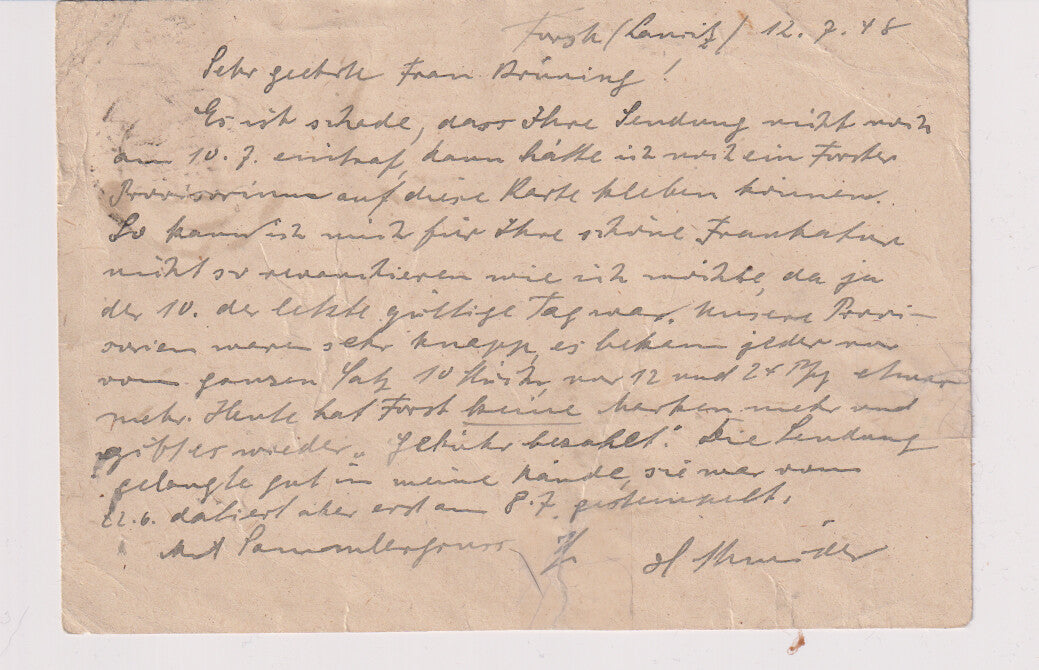 Forst (Lausitz) 12. 7. 48
Sehr geehrte Frau Brüning!
Es ist schade, dass Ihre Sendung nicht noch
am 10. 7. eintraf, dann hätte ich noch ein Forster
Provisorium auf diese Karte kleben können.
So kann ich mich für Ihre schöne Frankatur
nicht so revanchieren wie ich möchte, da ja
der 10. der letzte gültige Tag war. Unsere Provi-
sorien waren sehr knapp, es bekam jeder nur
vom ganzen Satz 10 Stück, nur 12 und 24 Pfg etwas
mehr. Heute hat Forst keine Marken mehr und
gibt es wieder „Gebühr bezahlt". Die Sendung
gelangte gut in meine Hände, sie war vom
22.6. datiert aber erst am 8.7. gestempelt.
Mit Sammlergruss
Schneider